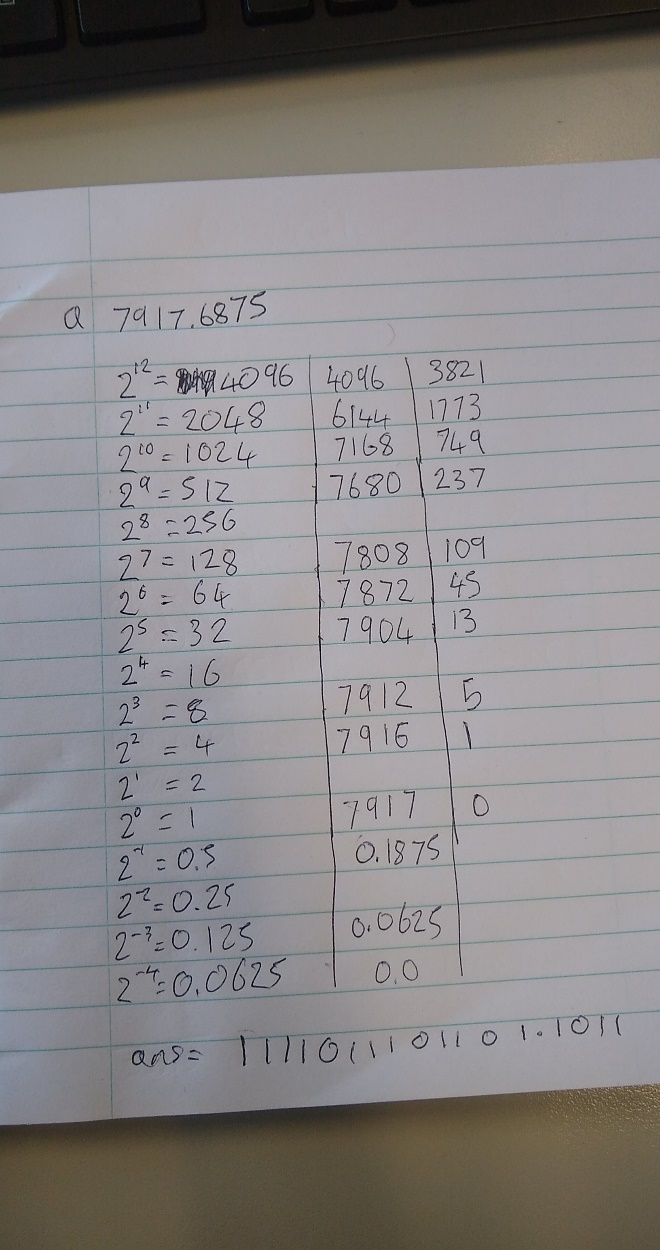 Q 7917.6875
2¹² = 4096 4096 3821
2¹¹ = 2048 6144 1773
2¹⁰ = 1024 7168 749
2⁹ = 512 7680 237
2⁸ = 256
2⁷ = 128 7808 109
2⁶ = 64 7872 45
2⁵ = 32 7904 13
2⁴ = 16
2³ = 8 7912 5
2² = 4 7916 1
2¹ = 2
2⁰ = 1 7917 0
2⁻¹ = 0.5 0.1875
2⁻² = 0.25
2⁻³ = 0.125 0.0625
2⁻⁴ = 0.0625 0.0
ans = 1111011101101.1011